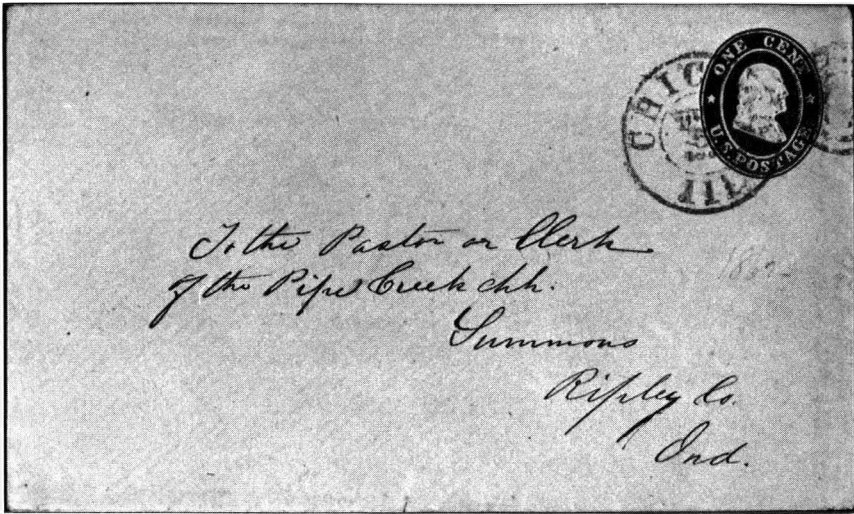 ONE CENT
U.S. POSTAGE
CHIC
ILL
To the Pastor or Clerk
of the Pipe Creek chh.
Summons
Ripley Co.
Ind.